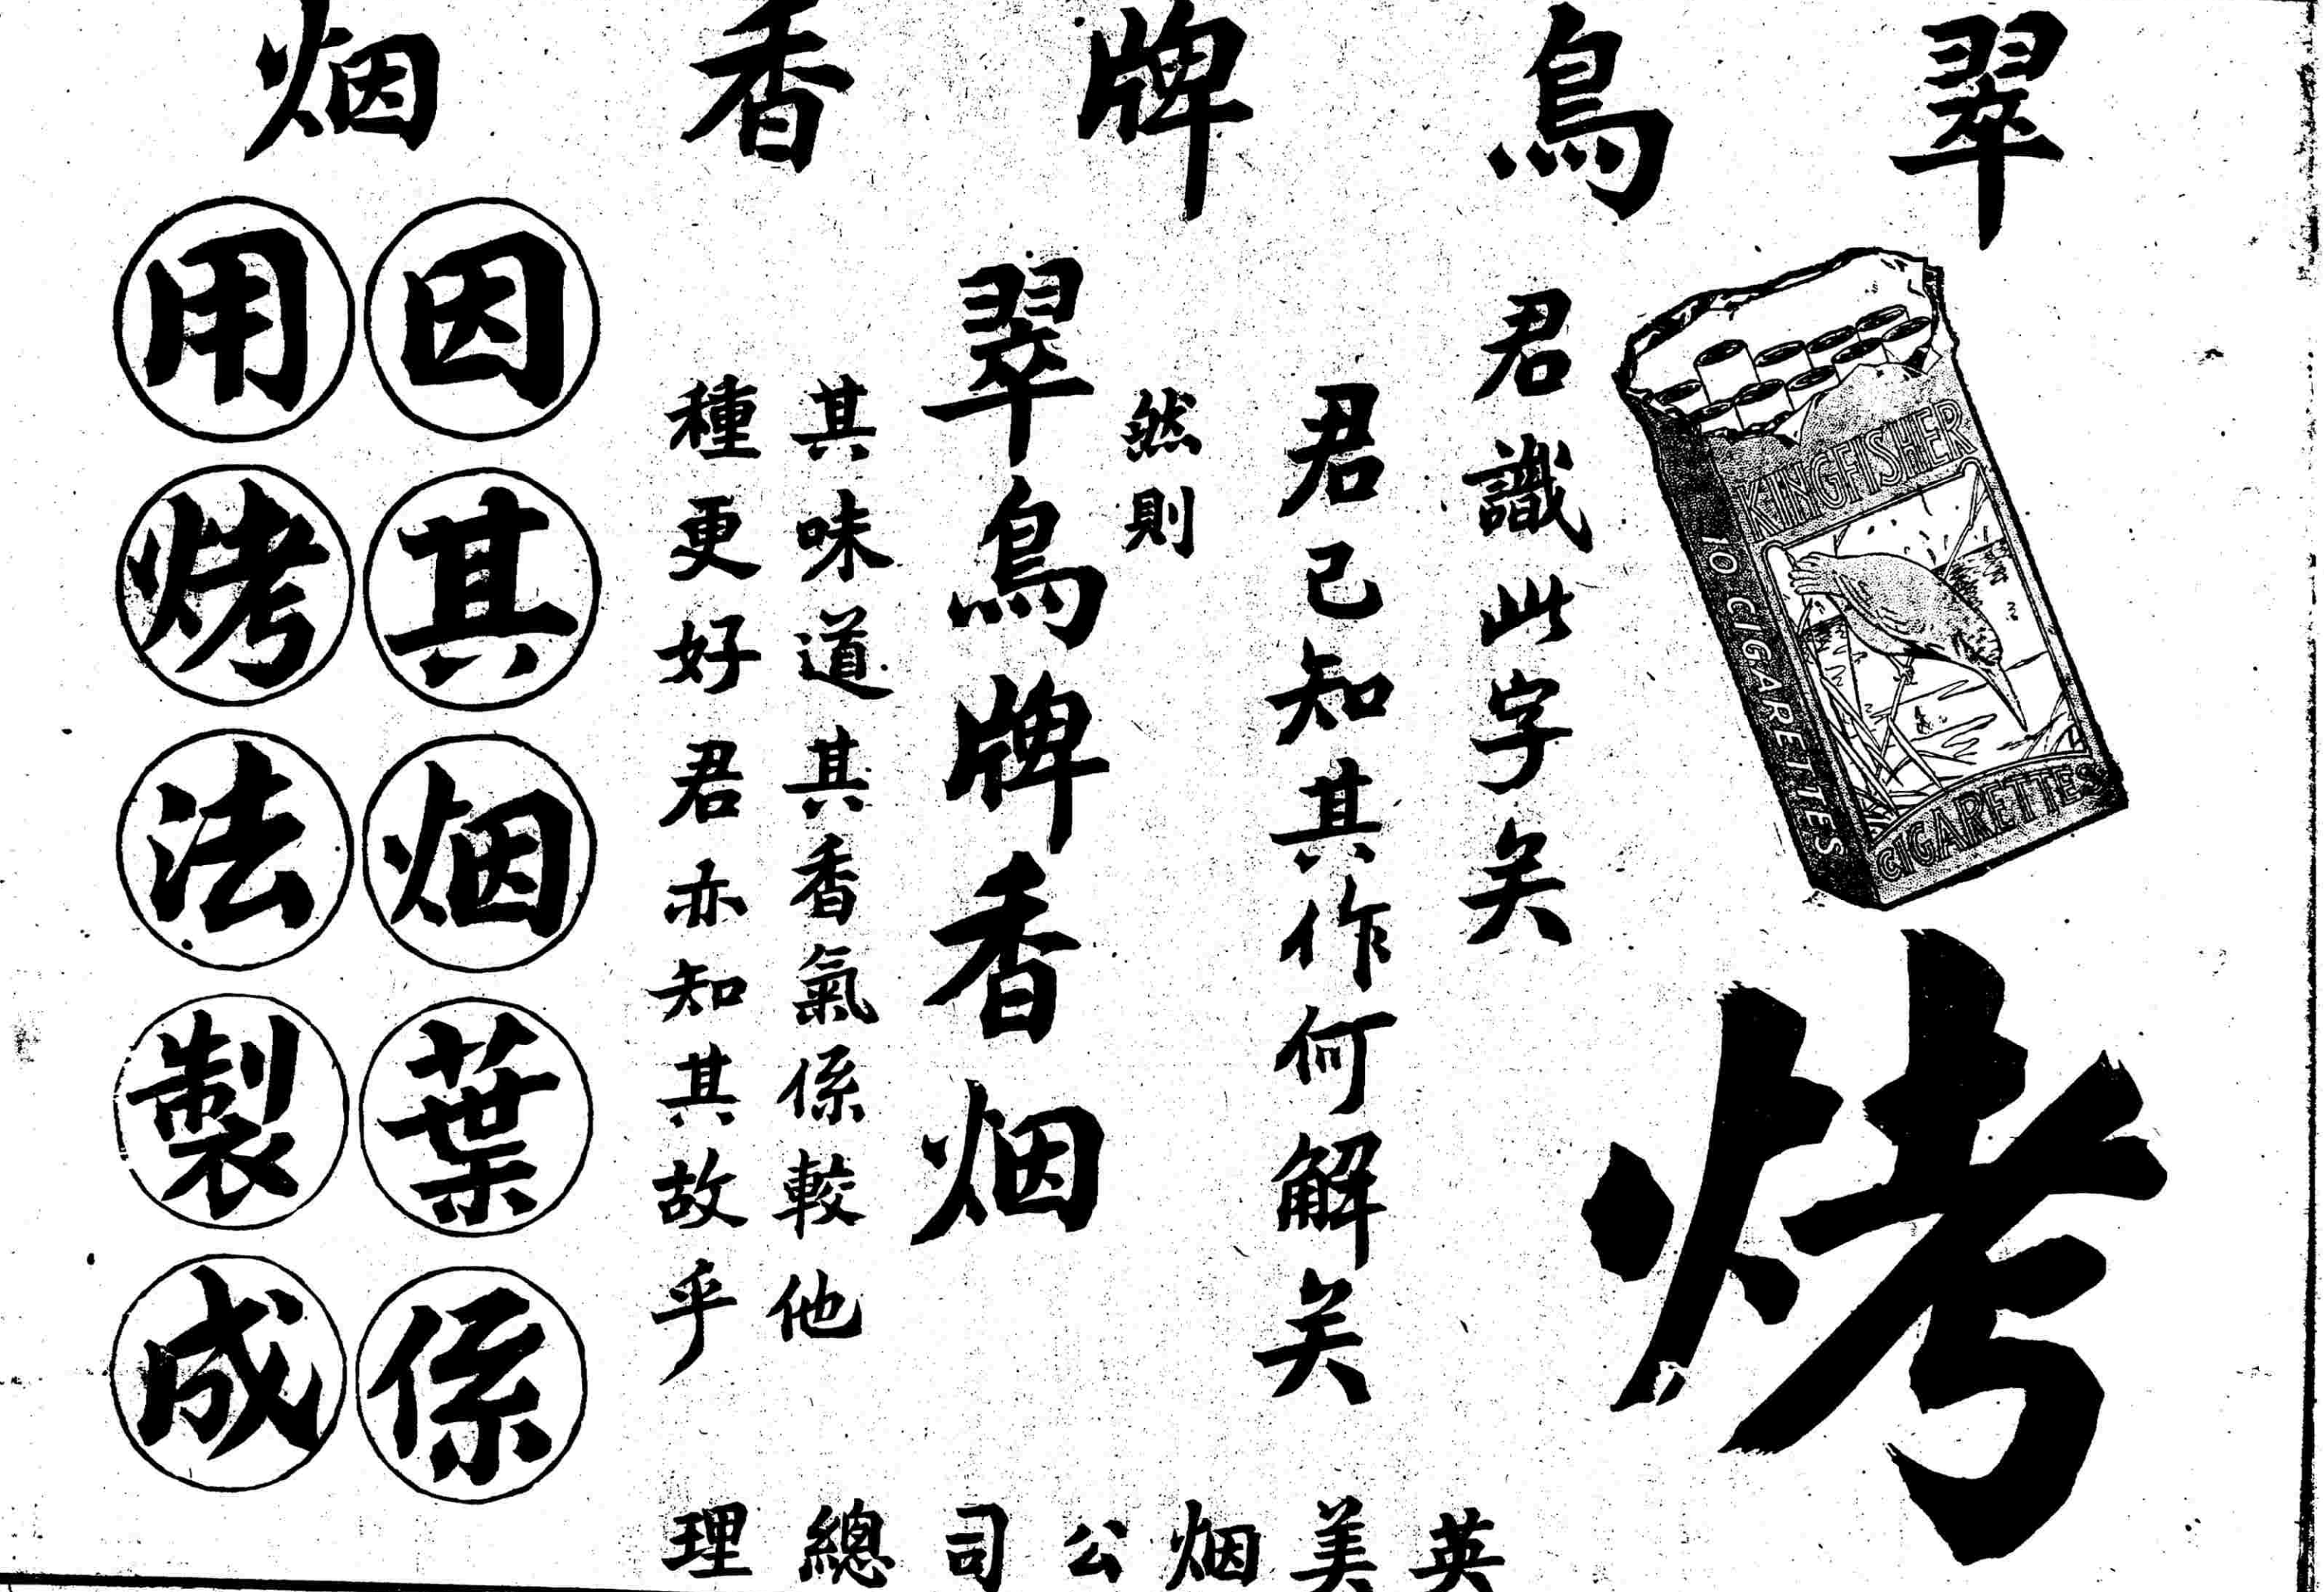 翠鳥牌香烟
KINGFISHER
10 CIGARETTES
CIGARETTES
烤
君識此字矣
君已知其作何解矣
然則
翠鳥牌香烟
其味道其香氣係較他
種更好君亦知其故乎
因其烟葉係
用烤法製成
英美烟公司總理